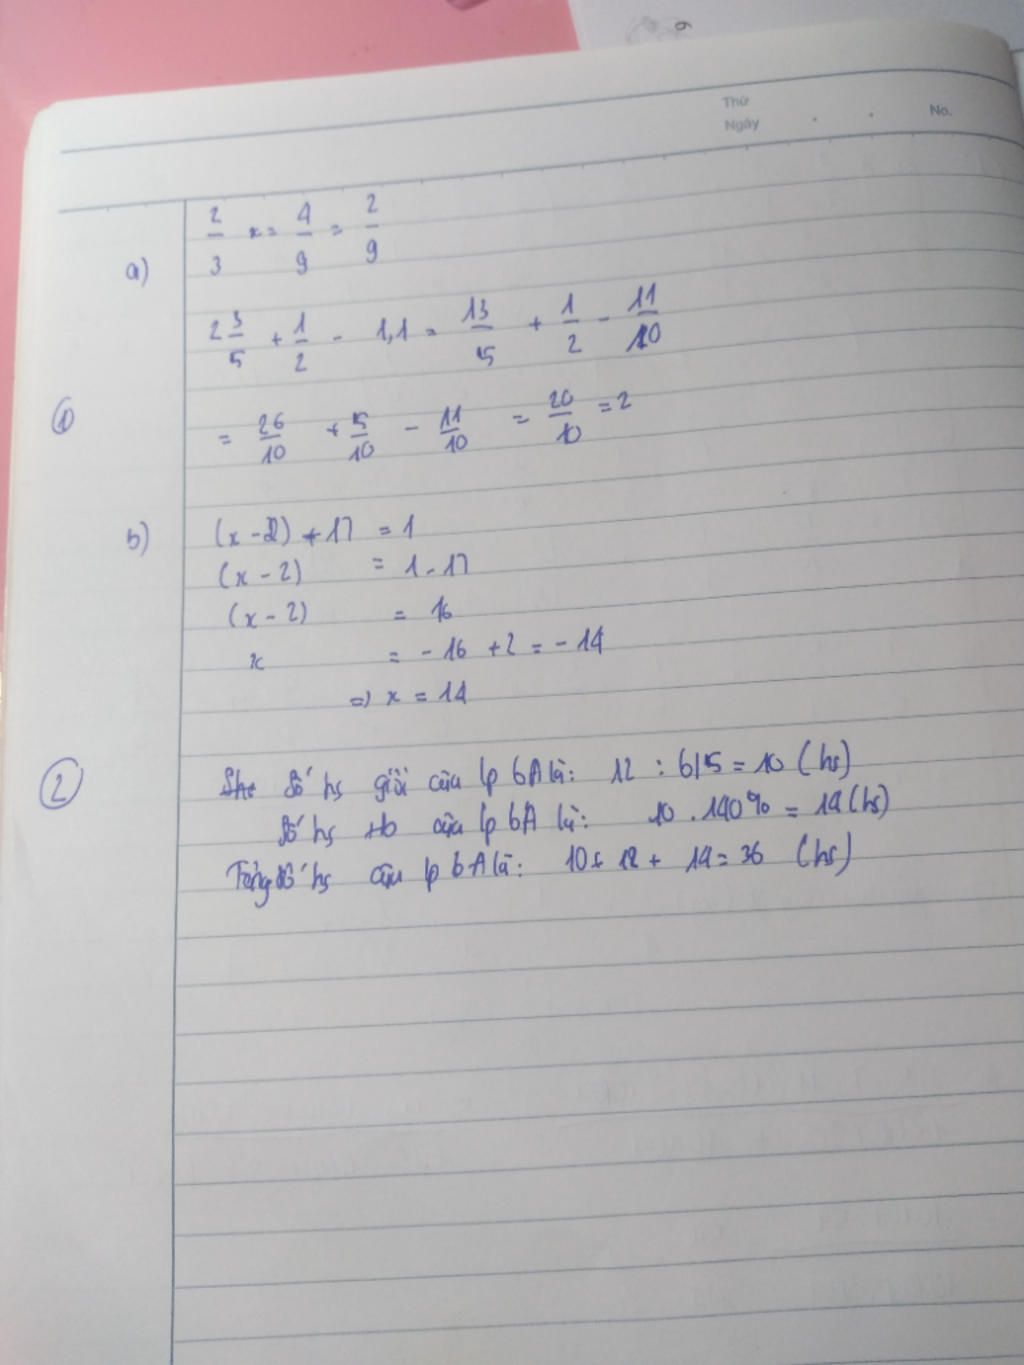 Thứ
Ngày . . No.
a) 2/3 x = 4/9 = 2/9
2 3/5 + 1/2 - 1,1 = 13/5 + 1/2 - 11/10
① = 26/10 + 5/10 - 11/10 = 20/10 = 2
b) (x - 2) + 17 = 1
(x - 2) = 1 - 17
(x - 2) = 16
x = - 16 + 2 = - 14
=> x = 14
② Số hs giỏi của lp 6A là: 12 : 6/5 = 10 (hs)
Số hs tb của lp 6A là: 10 . 140% = 14 (hs)
Tổng số hs của lp 6A là: 10 + 12 + 14 = 36 (hs)